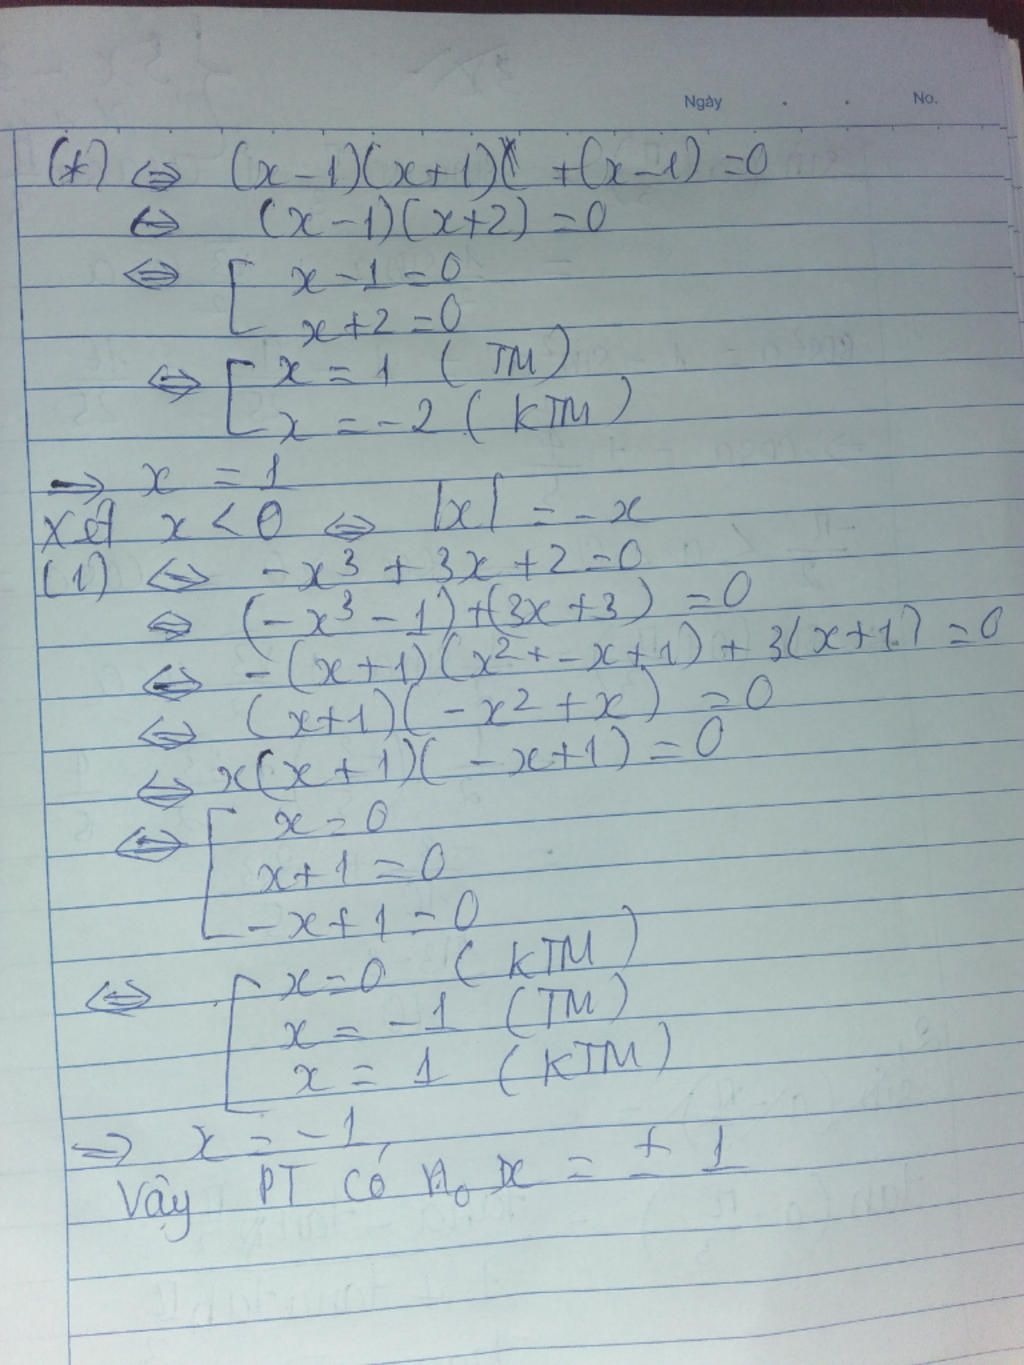 Ngày . . No.
(*) ⇔ (x-1)(x+1) +(x-1) =0
⇔ (x-1)(x+2) =0
⇔ [ x-1=0
x+2=0
⇔ [ x = 1 (TM)
x = -2 (KTM)
→ x = 1
Xét x < 0 ⇔ |x| = -x
(1) ⇔ -x³ + 3x + 2 = 0
⇔ (-x³ - 1) + (3x+3) = 0
⇔ -(x+1)(x² + -x+1) + 3(x+1) = 0
⇔ (x+1)(-x² + x) = 0
⇔ x(x+1)(-x+1) = 0
⇔ [ x = 0
x+1 = 0
-x+1 = 0
⇔ [ x=0 (KTM)
x = -1 (TM)
x = 1 (KTM)
⇒ x = -1
Vậy PT có n₀ x = ± 1